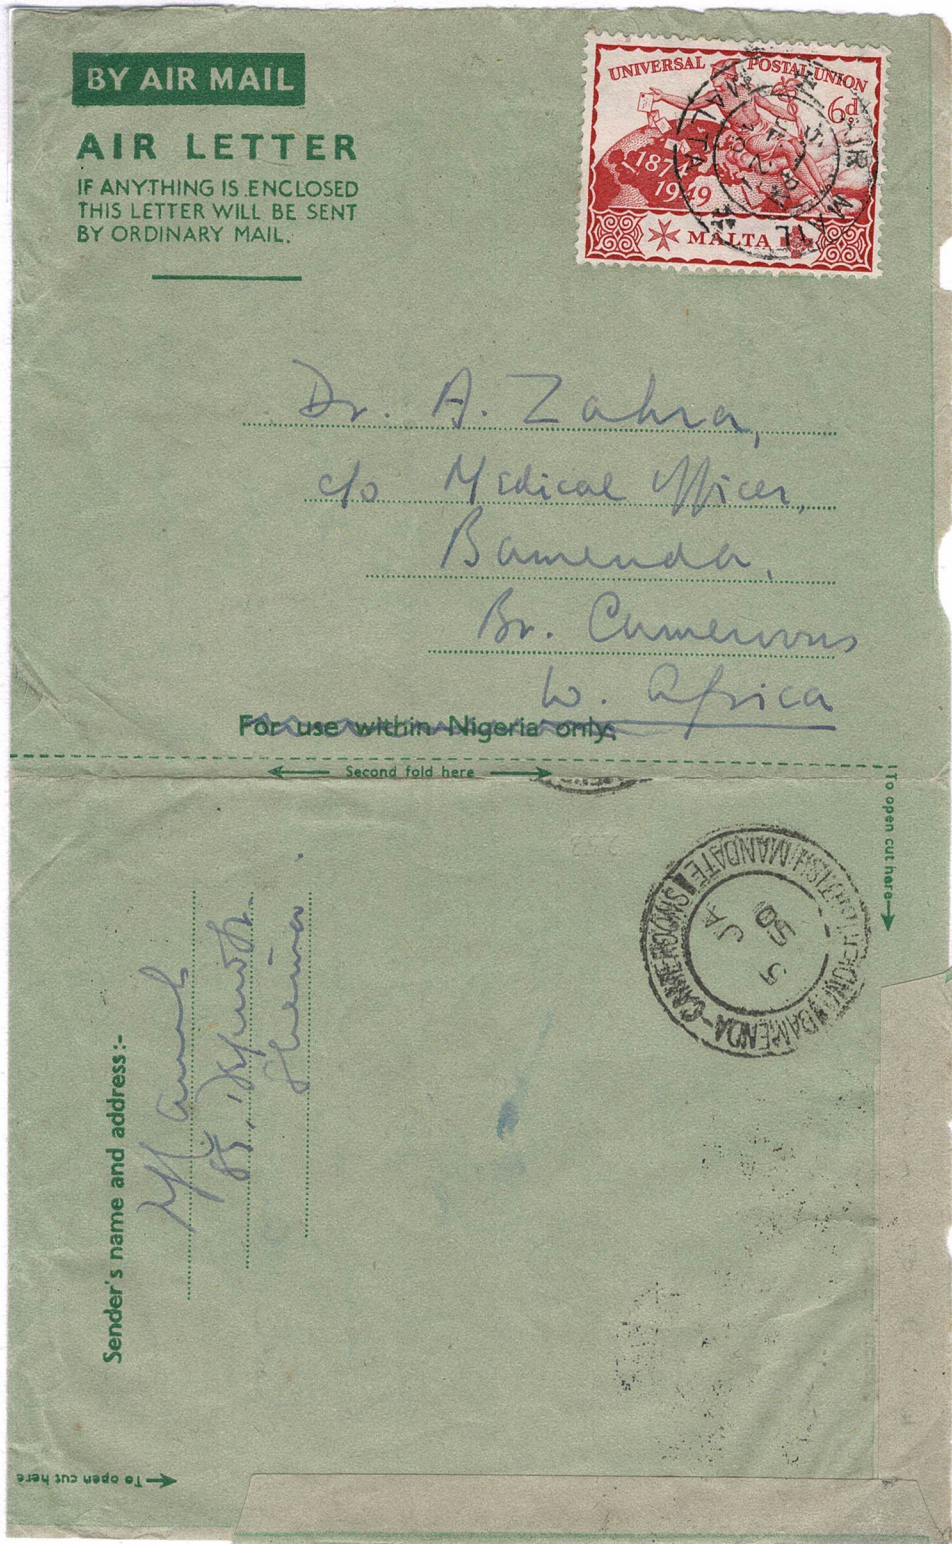 BY AIR MAIL
AIR LETTER
IF ANYTHING IS ENCLOSED
THIS LETTER WILL BE SENT
BY ORDINARY MAIL.
UNIVERSAL POSTAL UNION
6d
1949
MALTA
MALTA
AIR MAIL
Dr. A. Zahra,
c/o Medical Officer,
Bamenda,
Br. Cameroons
W. Africa
For use within Nigeria only.
Second fold here
To open cut here
BAMENDA-CAMEROONS
BRITISH MANDATE
5
JA
50
Sender's name and address:-
85,
Sliema.
To open cut here